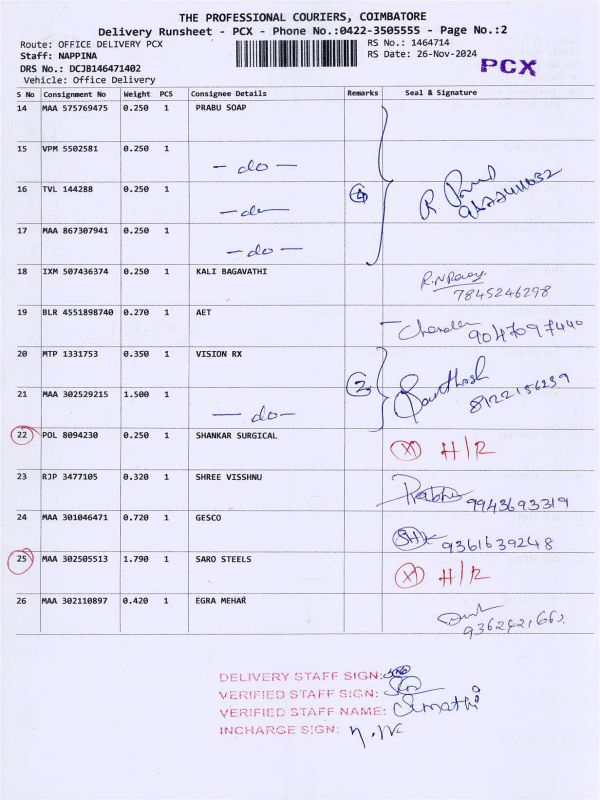 THE PROFESSIONAL COURIERS, COIMBATORE
Delivery Runsheet - PCX - Phone No.:0422-3505555 - Page No.:2
Route: OFFICE DELIVERY PCX
RS No.: 1464714
Staff: NAPPINA
RS Date: 26-Nov-2024
PCX
DRS No.: DCJB146471402
Vehicle: Office Delivery
S No Consignment No Weight PCS Consignee Details Remarks Seal & Signature
14 MAA 575769475 0.250 1 PRABU SOAP
15 VPM 5502581 0.250 1 - do -
16 TVL 144288 0.250 1 - do - 4
17 MAA 867307941 0.250 1 - do -
18 IXM 507436374 0.250 1 KALI BAGAVATHI
7845246298
19 BLR 4551898740 0.270 1 AET
9047097440
20 MTP 1331753 0.350 1 VISION RX 2
21 MAA 302529215 1.500 1 - do - 8122156239
22 POL 8094230 0.250 1 SHANKAR SURGICAL X H/R
23 RJP 3477105 0.320 1 SHREE VISSHNU Prabhu 9943693319
24 MAA 301046471 0.720 1 GESCO 9361639248
25 MAA 302505513 1.790 1 SARO STEELS X H/R
26 MAA 302110897 0.420 1 EGRA MEHAR
DELIVERY STAFF SIGN:
VERIFIED STAFF SIGN:
VERIFIED STAFF NAME: Sumathi
INCHARGE SIGN: